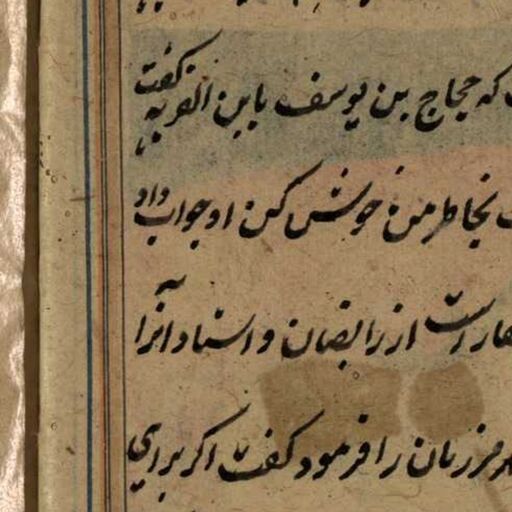 که حجاج بن یوسف باین القریه گفت
بخاطر من خوش کن او جواب داد
است از رابضان و استاد آنرا
مرزبان را فرمود کفت اکر برای